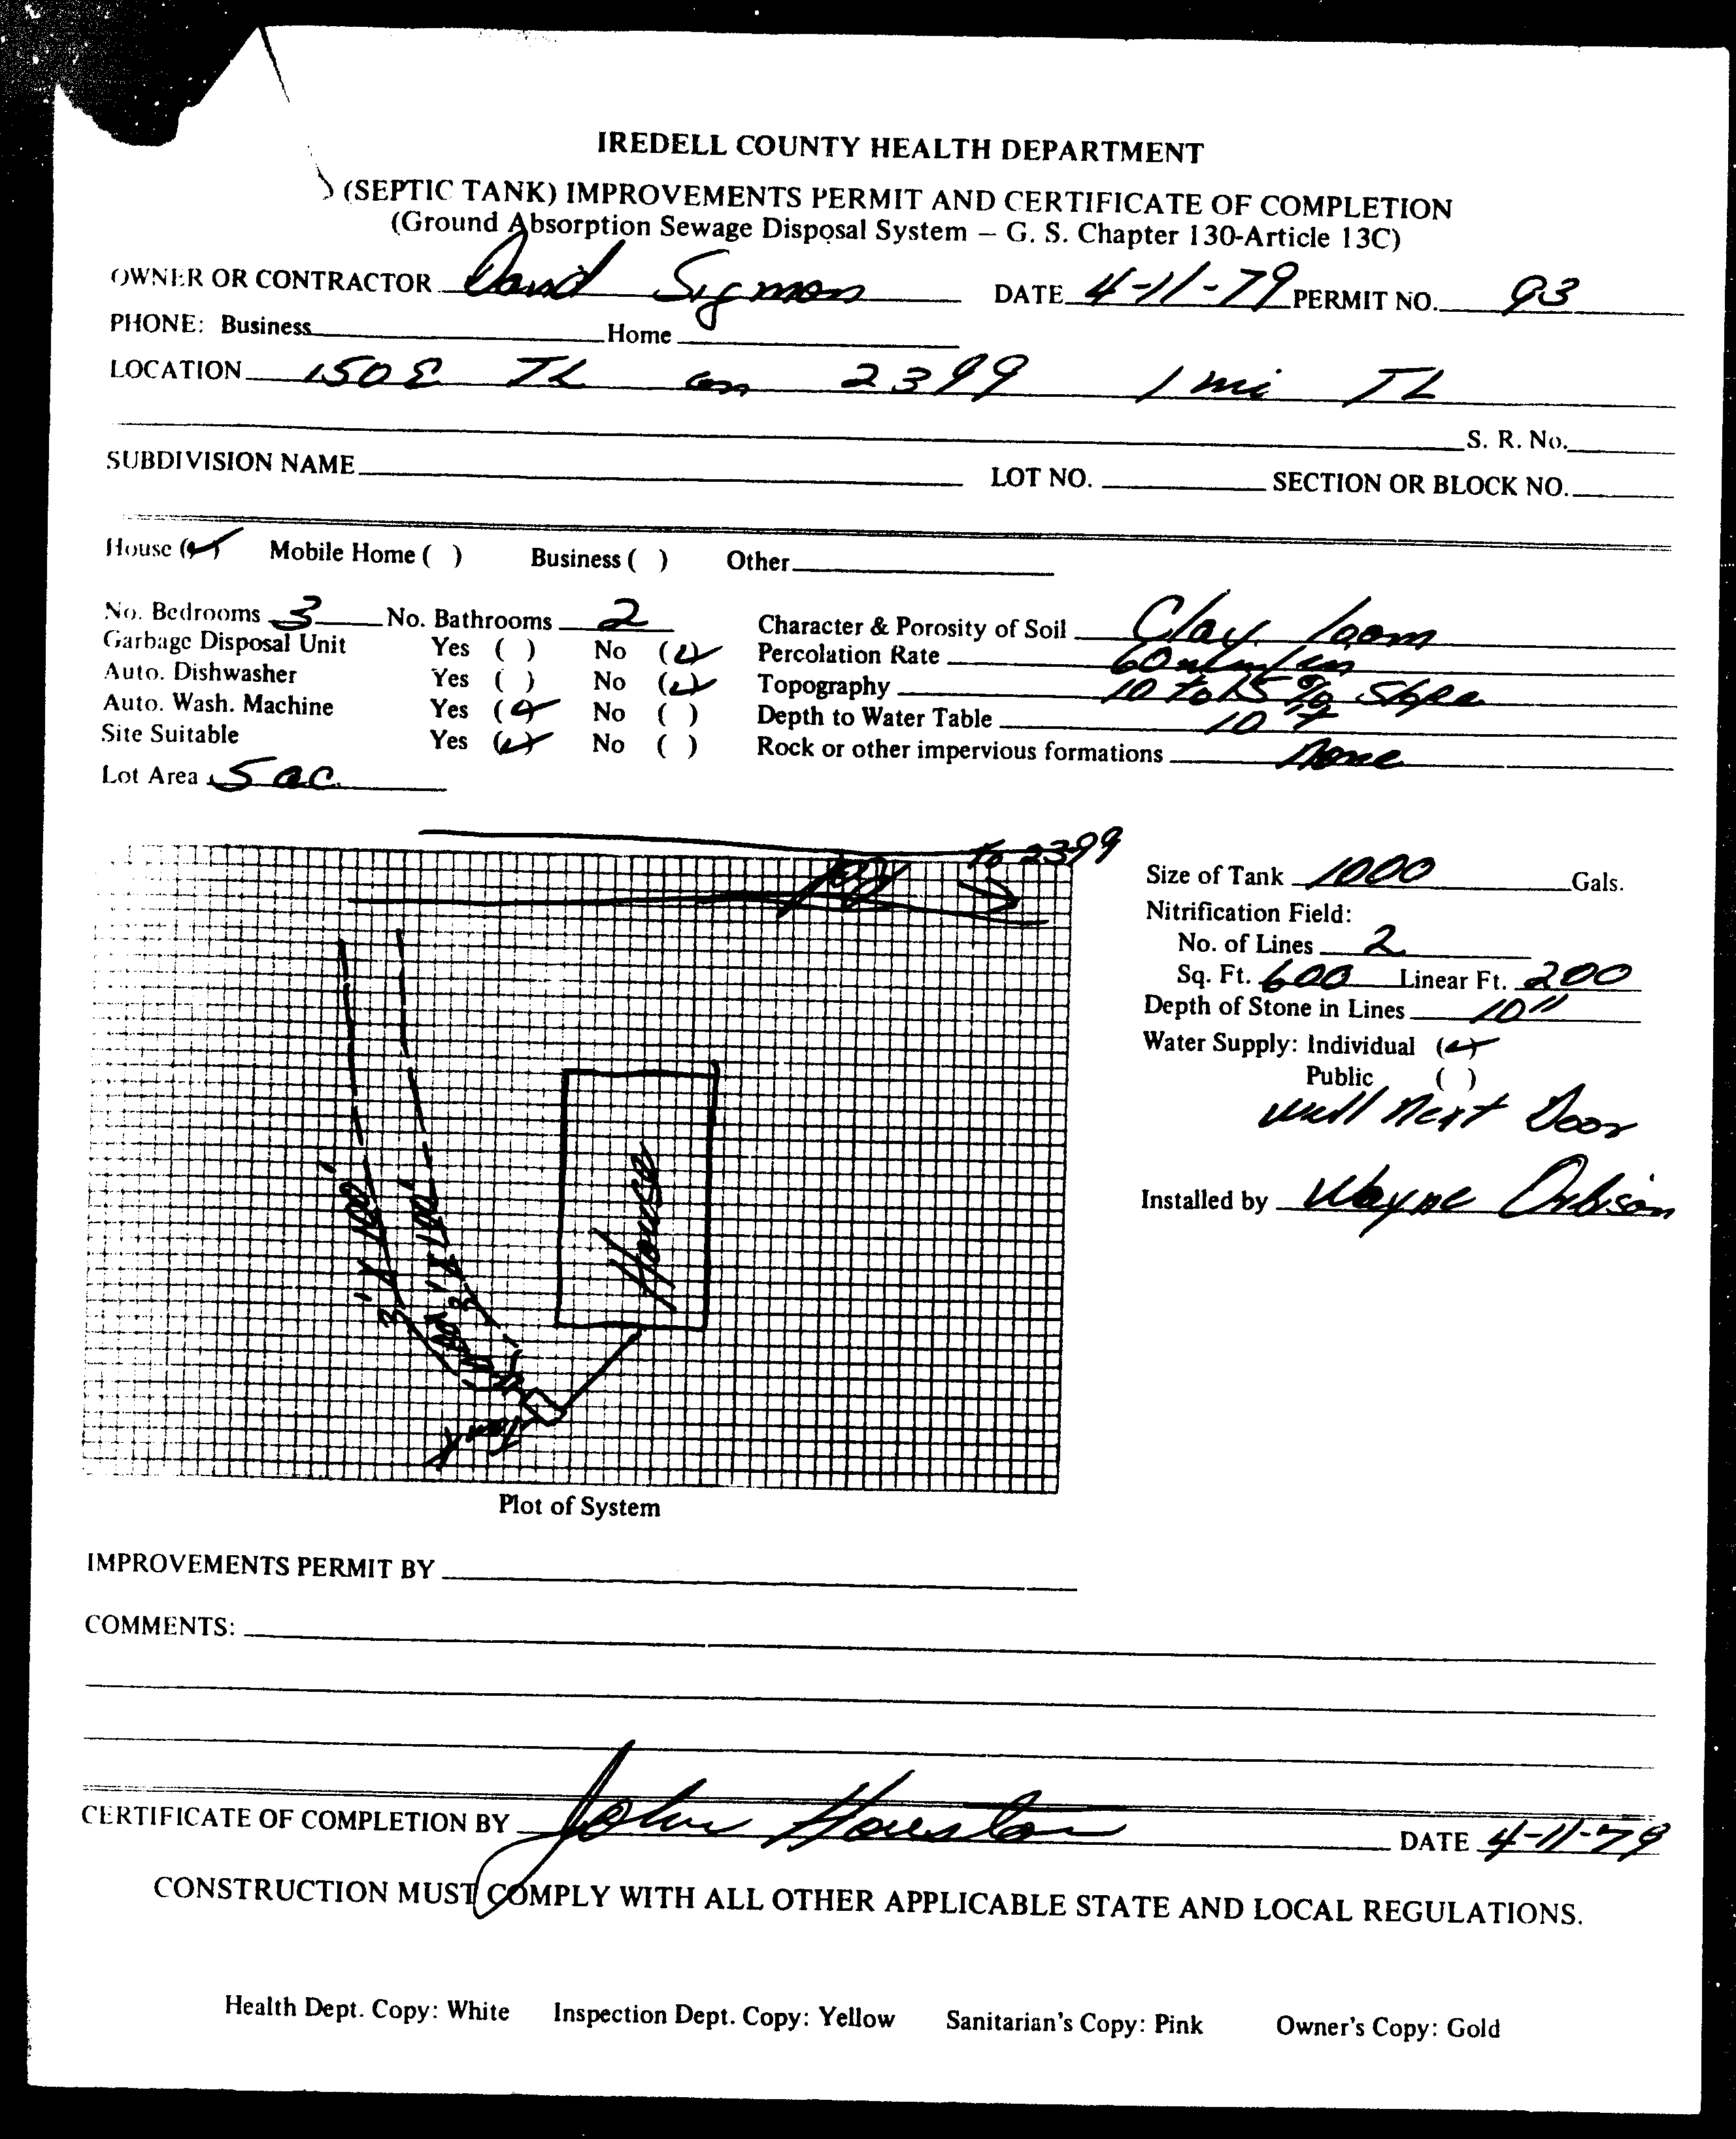 IREDELL COUNTY HEALTH DEPARTMENT
(SEPTIC TANK) IMPROVEMENTS PERMIT AND CERTIFICATE OF COMPLETION
(Ground Absorption Sewage Disposal System – G. S. Chapter 130-Article 13C)
OWNER OR CONTRACTOR David Sigmon DATE 4-11-79 PERMIT NO. 93
PHONE: Business Home
LOCATION 150 E TL on 2399 1 mi TL
S. R. No.
SUBDIVISION NAME LOT NO. SECTION OR BLOCK NO.
House (✓) Mobile Home ( ) Business ( ) Other
No. Bedrooms 3 No. Bathrooms 2 Character & Porosity of Soil Clay loam
Garbage Disposal Unit Yes ( ) No (✓) Percolation Rate 60 min/in
Auto. Dishwasher Yes ( ) No (✓) Topography 10 to 15 % slope
Auto. Wash. Machine Yes (✓) No ( ) Depth to Water Table 10' +
Site Suitable Yes (✓) No ( ) Rock or other impervious formations None
Lot Area 5 ac.
to 2399
Size of Tank 1000 Gals.
Nitrification Field:
No. of Lines 2
Sq. Ft. 600 Linear Ft. 200
Depth of Stone in Lines 10"
Water Supply: Individual (✓)
Public ( )
well next Door
Installed by Wayne Orbison
House
3' X 100'
3' X 100'
Tank
Plot of System
IMPROVEMENTS PERMIT BY
COMMENTS:
CERTIFICATE OF COMPLETION BY John Houston DATE 4-11-79
CONSTRUCTION MUST COMPLY WITH ALL OTHER APPLICABLE STATE AND LOCAL REGULATIONS.
Health Dept. Copy: White Inspection Dept. Copy: Yellow Sanitarian's Copy: Pink Owner's Copy: Gold